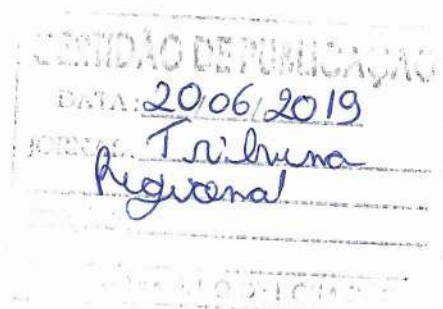 CERTIDÃO DE PUBLICAÇÃO
DATA: 20/06/2019
JORNAL: Tribuna
Regional